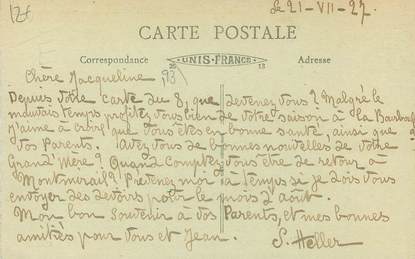 Le 21-VII-27.
CARTE POSTALE
Correspondance UNIS-FRANCE Adresse
20 13
Chère Jacqueline,
Depuis votre carte du 8, que devenez vous? Malgré le
mauvais temps profitez vous bien de votre saison à La
J'aime à croire que vous êtes en bonne santé, ainsi que
vos Parents. Avez vous de bonnes nouvelles de votre
Grand'Mère? Quand comptez vous être de retour à
Montmirail? Prévenez moi à temps si je dois vous
envoyer des devoirs pour le mois d'août.
Mon bon souvenir à vos Parents, et mes bonnes
amitiés pour vous et Jean. S. Heller